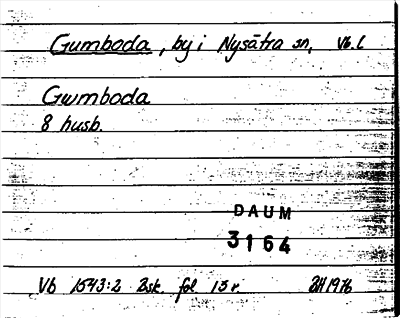 Gumboda, by i Nysätra sn, Vb. l
Gwmboda
8 husb.
DAUM
3164
Vb 1543:2 Bsk. fol 13 r. BH 1976